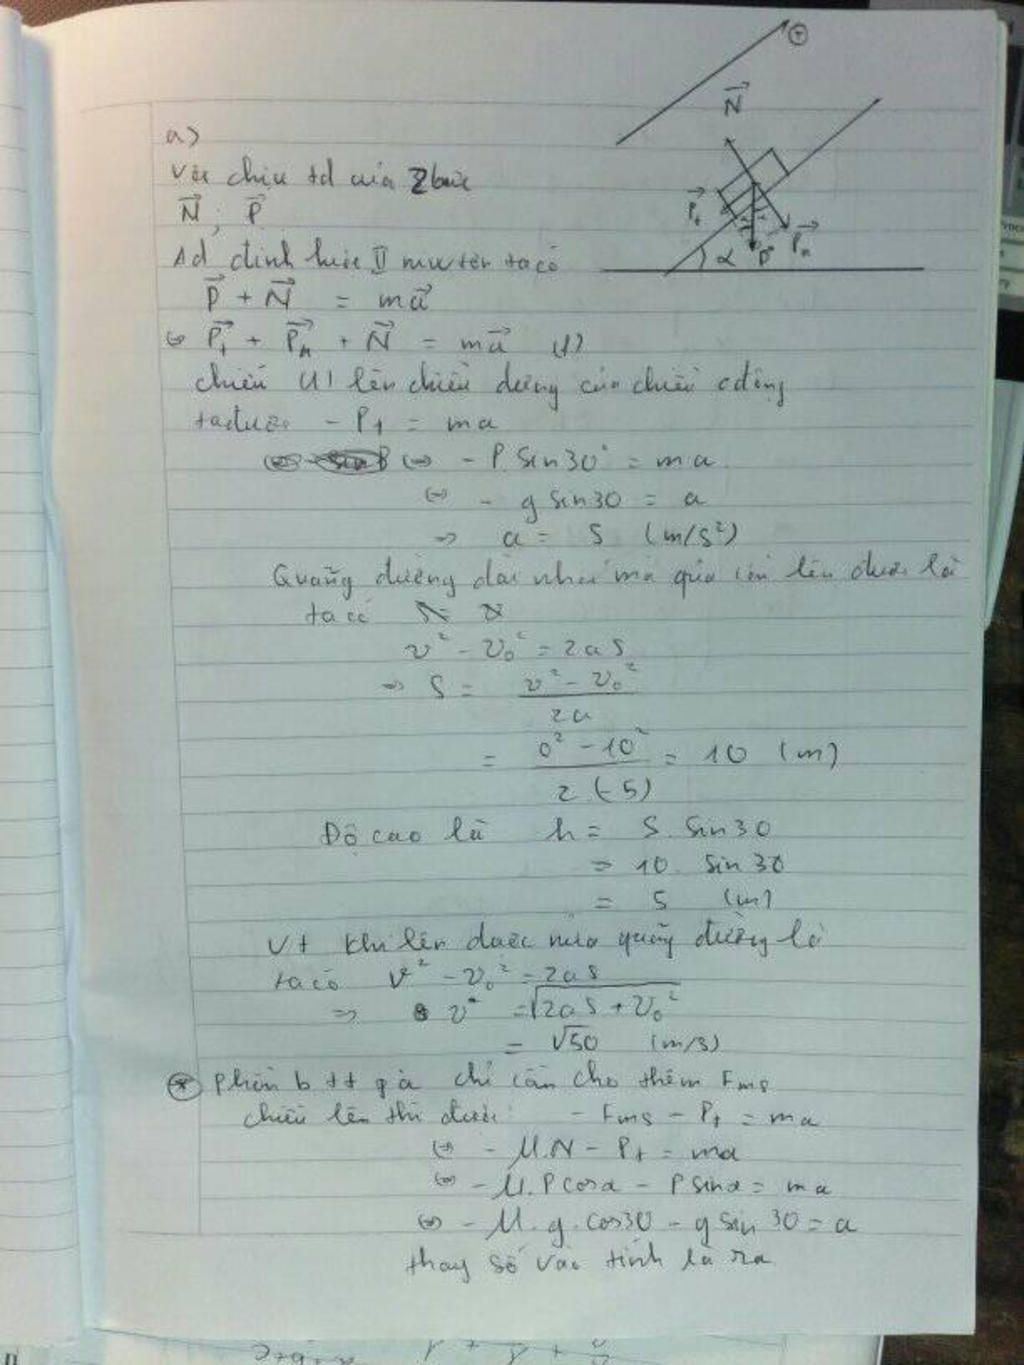 ⊕
N⃗
a)
Vật chịu td của 2 lực
P⃗t
P⃗n
N⃗ ; P⃗
α P
Ad định luật II niu tơn ta có
P⃗ + N⃗ = ma⃗
⇔ P⃗t + P⃗n + N⃗ = ma⃗ (1)
chiếu (1) lên chiều dương của chiều cđộng
ta được - Pt = ma
⇔ - P. Sin30° = ma
⇔ - g sin30 = a
⇒ a = 5 (m/s²)
Quãng đường dài nhất mà quả lên được là
ta có
v² - v₀² = 2aS
⇒ S = v² - v₀² / 2a
= 0² - 10² / 2 (-5) = 10 (m)
Độ cao là h = S. Sin30
= 10. sin30
= 5 (m)
Vt khi lên được nửa quãng đường là
ta có v² - v₀² = 2aS
⇒ v = √2aS + v₀²
= √50 (m/s)
* Phần b tt chỉ cần cho thêm Fms
chiếu lên thì được: - Fms - Pt = ma
⇔ - μ.N - Pt = ma
⇔ - μ.Pcosα - Psinα = ma
⇔ - μ.g.cos30 - gsin30 = a
thay số vào tính là ra